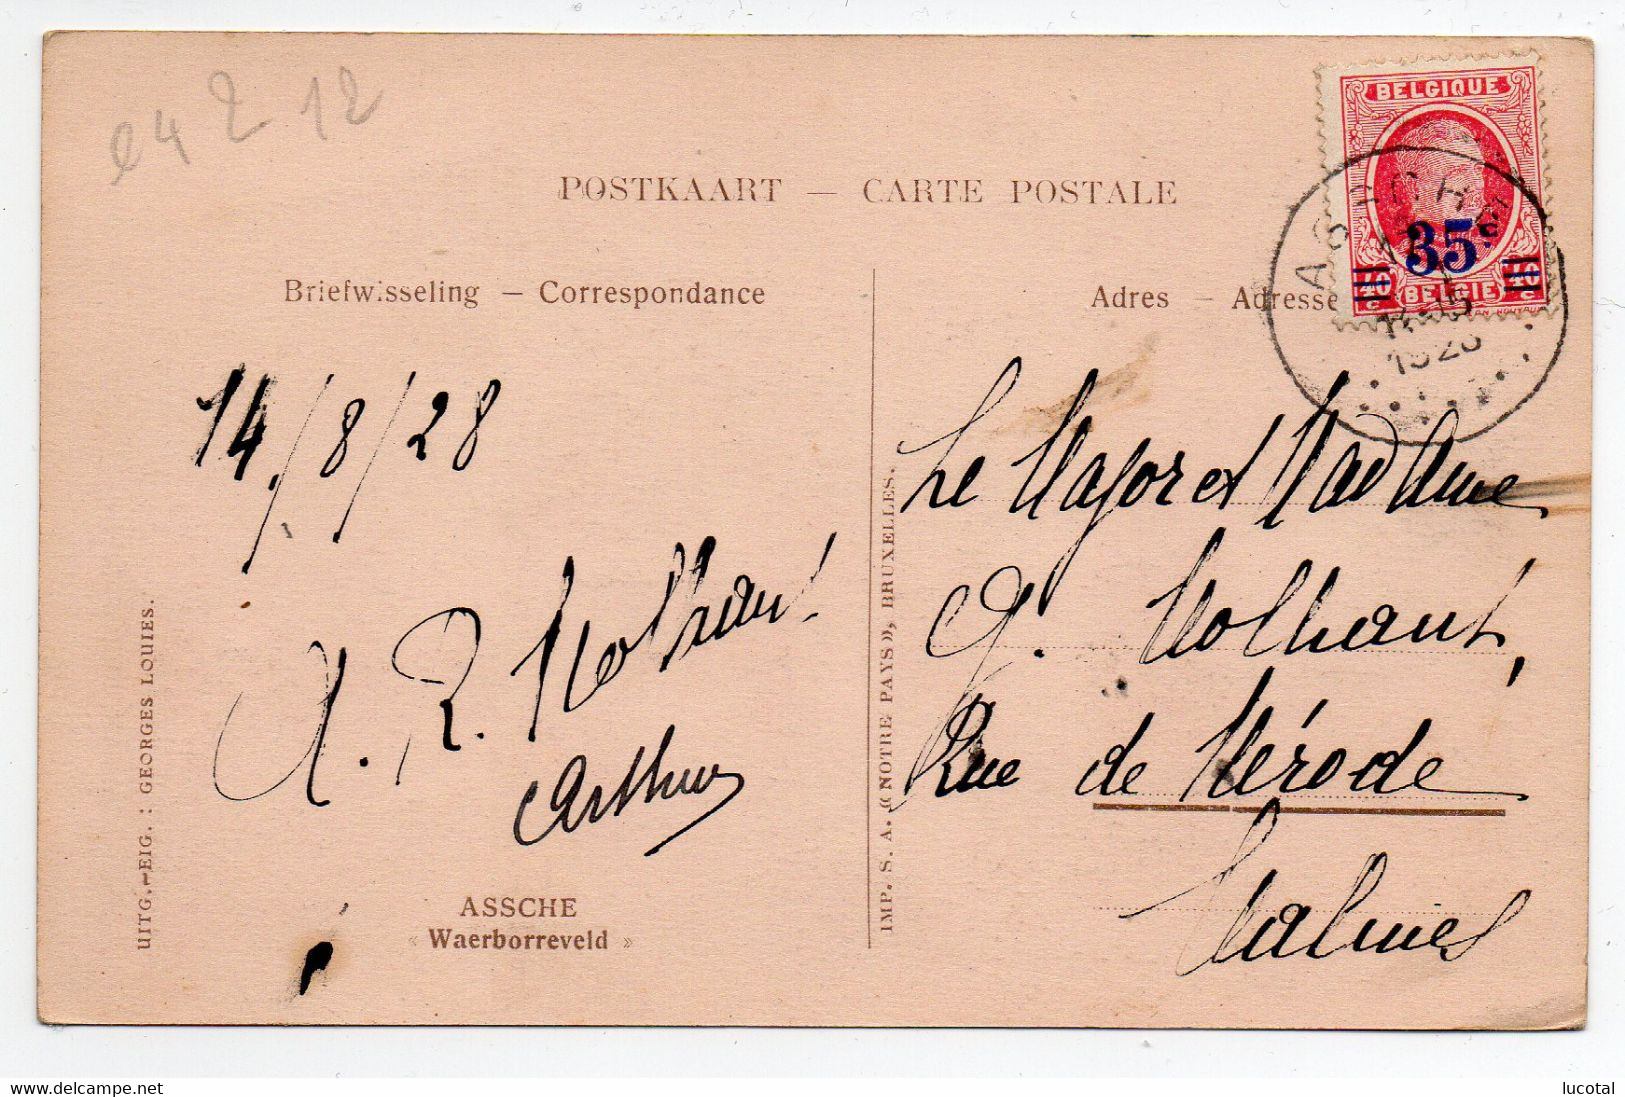 e4 2 12
POSTKAART — CARTE POSTALE
Briefwisseling — Correspondance
14/8/28
A. R. Molhant
Arthur
ASSCHE
« Waerborreveld »
UITG.-EIG. : GEORGES LOUIES.
IMP. S. A. « NOTRE PAYS », BRUXELLES.
Adres — Adresse
BELGIQUE
35c
40 c BELGIE 40 c
ASSCHE
1928
Le Major et Madame
Molhant,
Rue de Mérode
Malines
lucotal